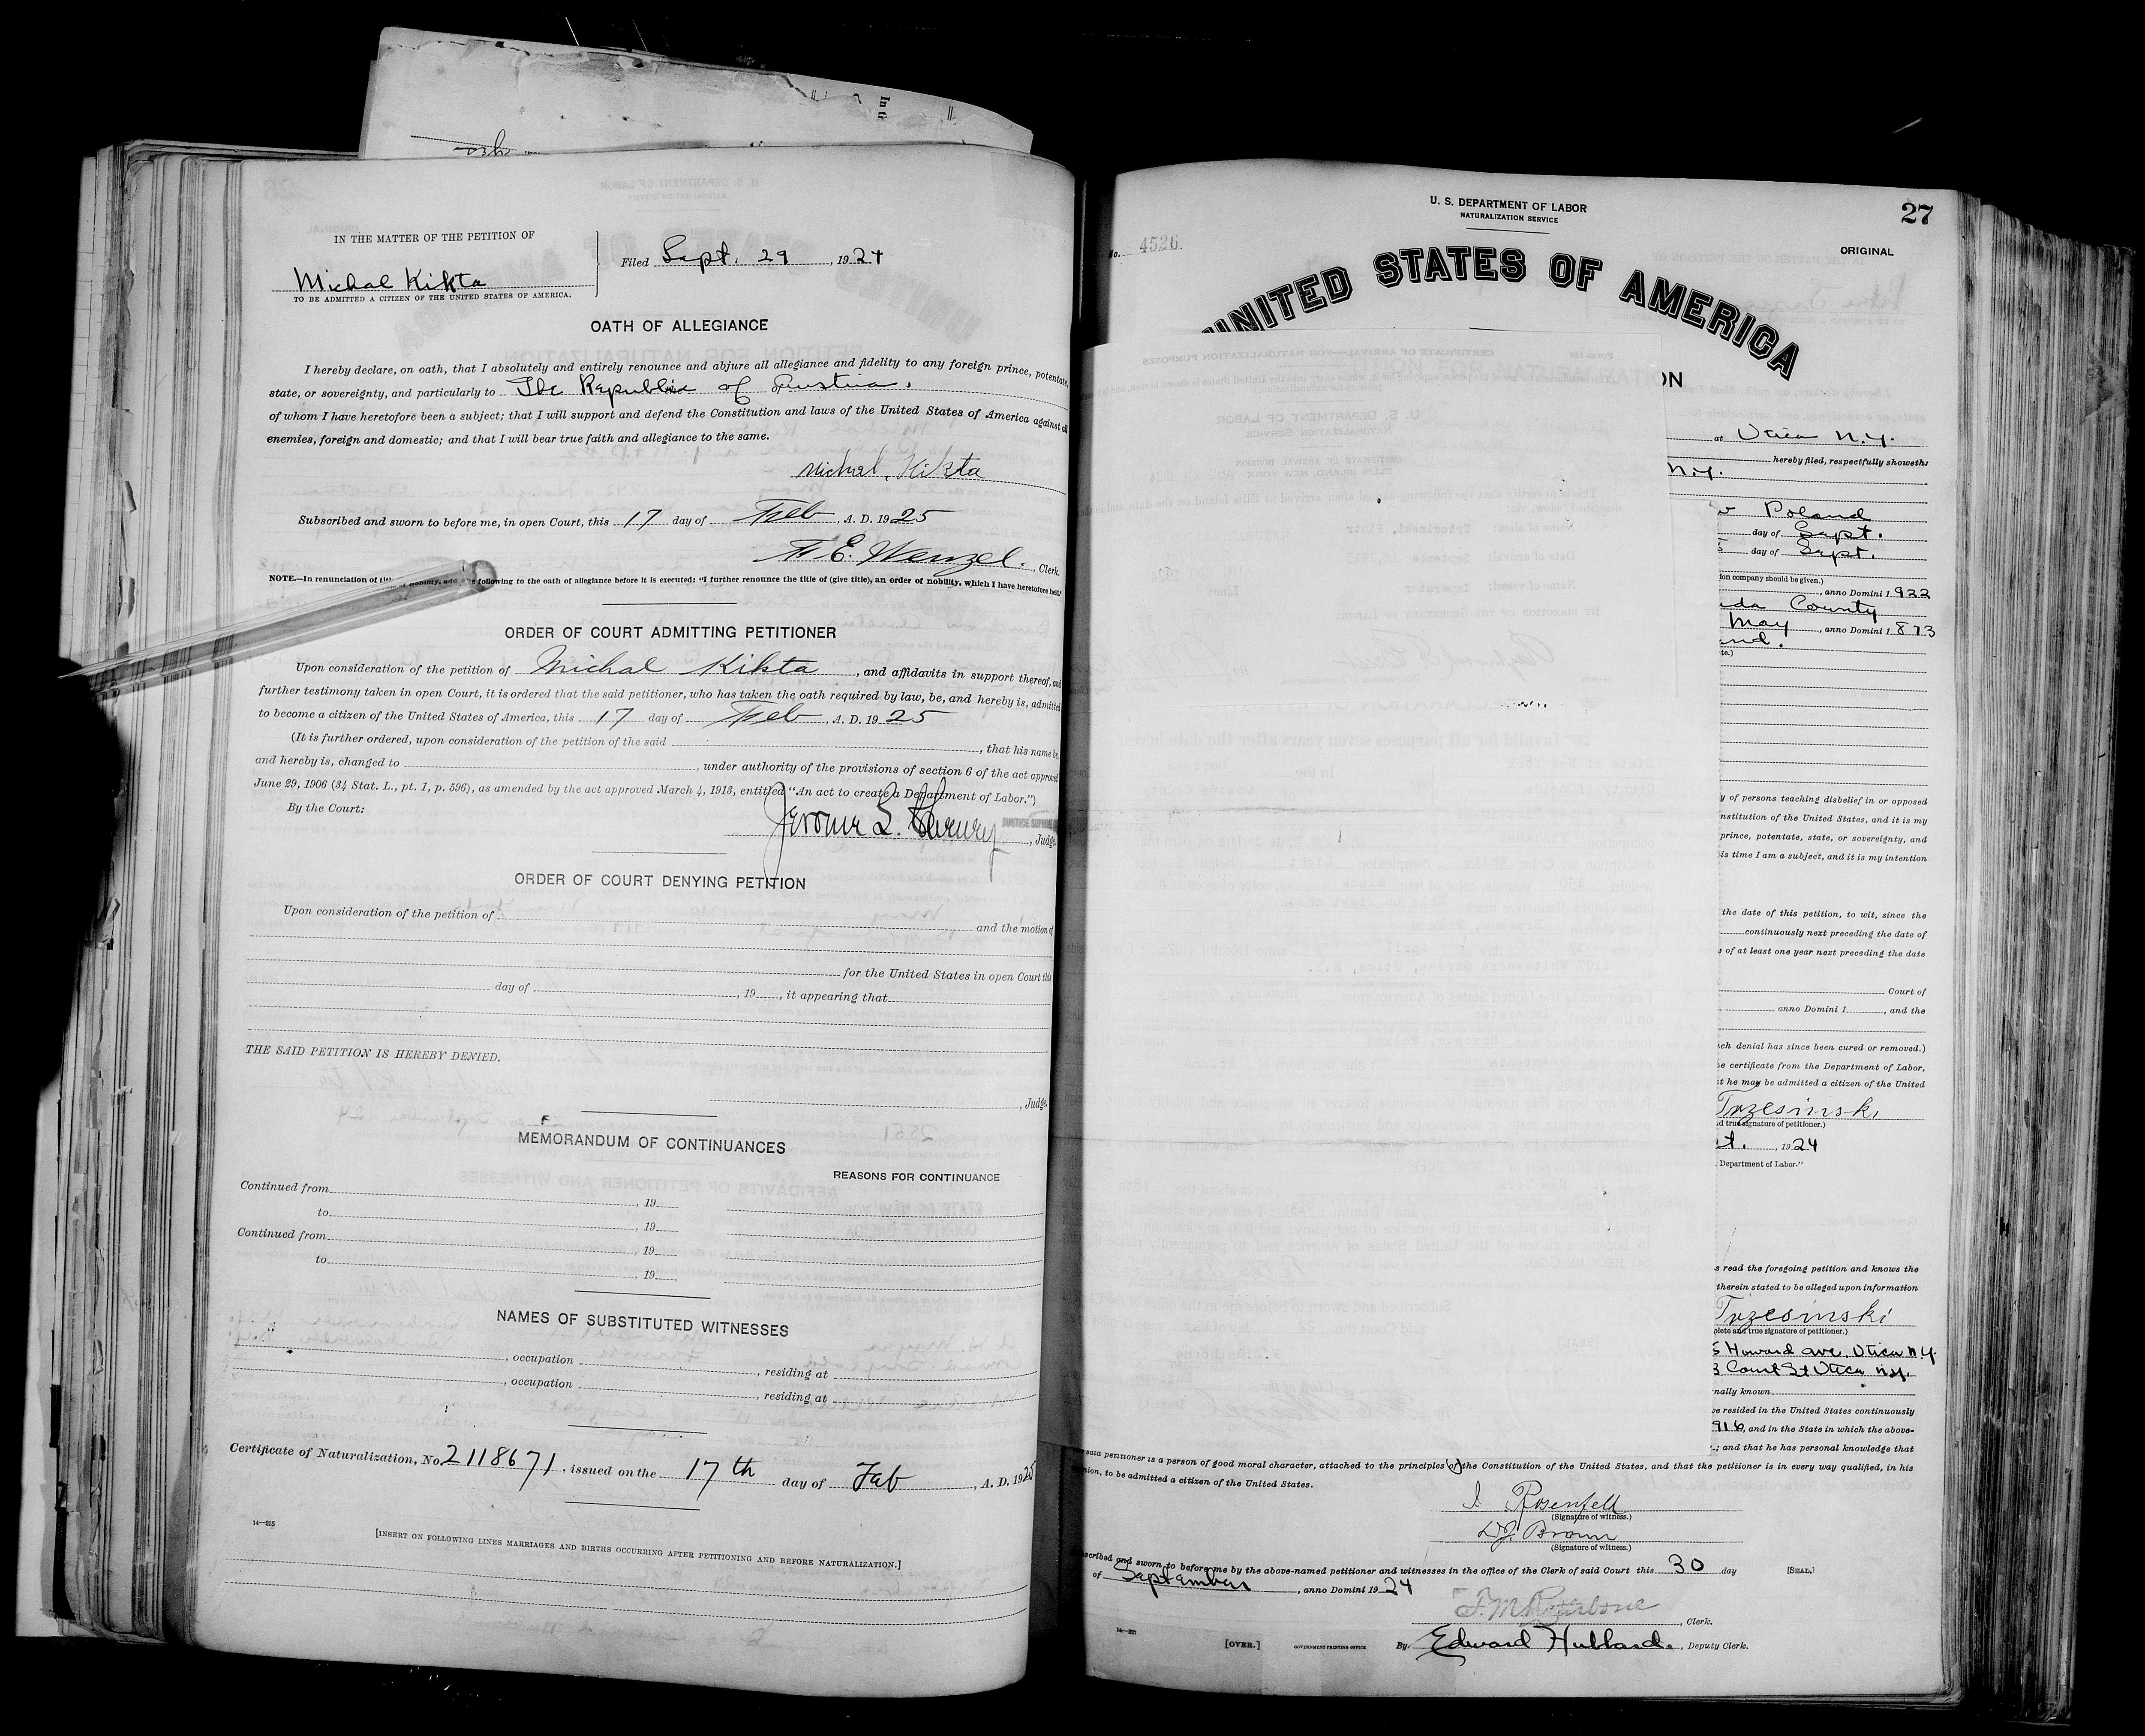 IN THE MATTER OF THE PETITION OF
Michal Kikta
TO BE ADMITTED A CITIZEN OF THE UNITED STATES OF AMERICA.
Filed Sept. 29, 1924
OATH OF ALLEGIANCE
I hereby declare, on oath, that I absolutely and entirely renounce and abjure all allegiance and fidelity to any foreign prince, potentate,
state, or sovereignty, and particularly to The Republic of Austria.
of whom I have heretofore been a subject; that I will support and defend the Constitution and laws of the United States of America against all
enemies, foreign and domestic; and that I will bear true faith and allegiance to the same.
Michal. Kikta
Subscribed and sworn to before me, in open Court, this 17 day of Feb, A. D. 1925
E. Wenzel., Clerk.
NOTE.—In renunciation of title of nobility, add the following to the oath of allegiance before it is executed: "I further renounce the title of (give title), an order of nobility, which I have heretofore held."
ORDER OF COURT ADMITTING PETITIONER
Upon consideration of the petition of Michal Kikta, and affidavits in support thereof, and
further testimony taken in open Court, it is ordered that the said petitioner, who has taken the oath required by law, be, and hereby is, admitted
to become a citizen of the United States of America, this 17 day of Feb, A. D. 1925
(It is further ordered, upon consideration of the petition of the said , that his name be,
and hereby is, changed to , under authority of the provisions of section 6 of the act approved
June 29, 1906 (34 Stat. L., pt. 1, p. 596), as amended by the act approved March 4, 1913, entitled "An act to create a Department of Labor.")
By the Court:
Jerome L. , Judge.
ORDER OF COURT DENYING PETITION
Upon consideration of the petition of
and the motion of
for the United States in open Court this
day of , 19 , it appearing that
THE SAID PETITION IS HEREBY DENIED.
, Judge.
MEMORANDUM OF CONTINUANCES
REASONS FOR CONTINUANCE
Continued from , 19
to , 19
Continued from , 19
to , 19
NAMES OF SUBSTITUTED WITNESSES
, occupation , residing at
, occupation , residing at
Certificate of Naturalization, No 2118671, issued on the 17th day of Feb, A. D. 1925
14—225
[INSERT ON FOLLOWING LINES MARRIAGES AND BIRTHS OCCURRING AFTER PETITIONING AND BEFORE NATURALIZATION.]
U. S. DEPARTMENT OF LABOR
NATURALIZATION SERVICE
27
No. 4526
ORIGINAL
UNITED STATES OF AMERICA
ON
at Utica N.Y.
hereby filed, respectfully showeth:
N.Y.
Poland
day of Sept.
day of Sept.
ion company should be given.)
, anno Domini 1922
da County
May , anno Domini 1873
and.
te.)
y of persons teaching disbelief in or opposed
nstitution of the United States, and it is my
prince, potentate, state, or sovereignty, and
is time I am a subject, and it is my intention
the date of this petition, to wit, since the
continuously next preceding the date of
s of at least one year next preceding the date
Court of
anno Domini 1 , and the
ch denial has since been cured or removed.)
e certificate from the Department of Labor,
t he may be admitted a citizen of the United
Trzesinski
d true signature of petitioner.)
t. , 1924
Department of Labor."
s read the foregoing petition and knows the
therein stated to be alleged upon information
Trzesinski
plete and true signature of petitioner.)
5 Howard ave. Utica N.Y.
3 Court St Utica N.Y.
nally known
ve resided in the United States continuously
916, and in the State in which the above-
; and that he has personal knowledge that
said petitioner is a person of good moral character, attached to the principles of the Constitution of the United States, and that the petitioner is in every way qualified, in his
nion, to be admitted a citizen of the United States.
I Rosenfeld
(Signature of witness.)
Brown
(Signature of witness.)
scribed and sworn to before me by the above-named petitioner and witnesses in the office of the Clerk of said Court this 30 day
[SEAL.]
of September , anno Domini 1924
, Clerk.
14—221
[OVER.]
GOVERNMENT PRINTING OFFICE
By Edward Hubbard. , Deputy Clerk.